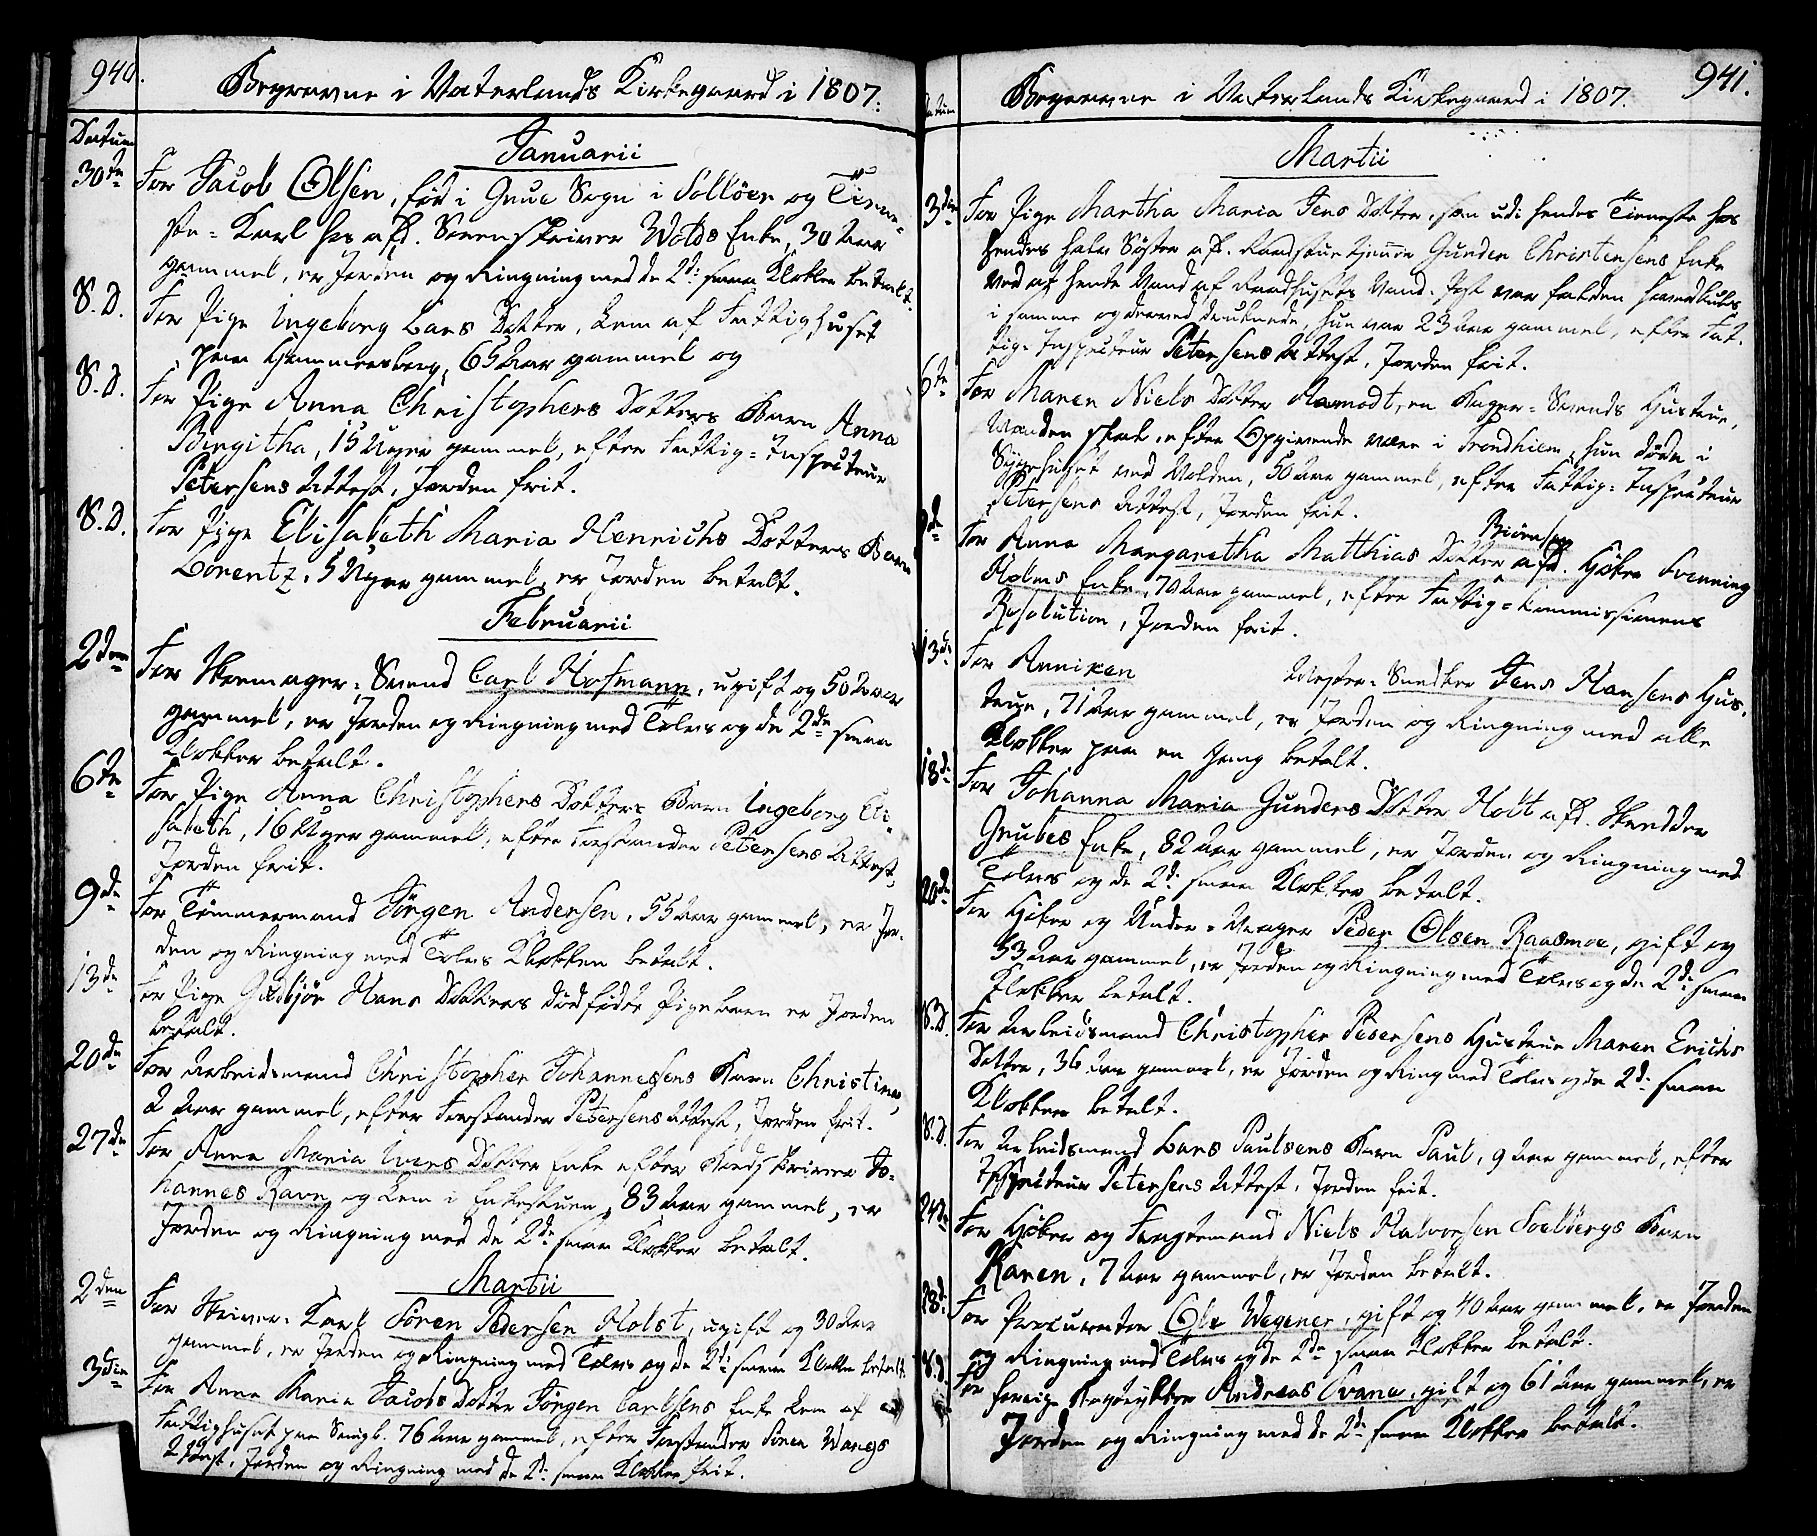 940.
Begravne i Vaterlands Kirkegaard i 1807.
Datum
Januarii
30te For Jacob Olsen, fød i Grue Sogn i Solløer og Tienne-
ste-Karl hos afd. Sorenskriver Wolds Enke, 30 Aar
gammel, er Jorden og Ringning med de 2de smaa Klokker betalt.
S. D. For Pige Ingeborg Lars Dotter, Lem af Fattighuset
paa Hammersborg, 65 Aar gammel og
S. D. For Pige Anna Christophers Dotters Barn Anna
Birgitha, 15 Uger gammel, efter Fattig-Inspecteur
Petersens Attest, Jorden frit.
S. D. For Pige Elisabeth Maria Henrichs Dotters Barn
Lorentz, 5 Uger gammel, er Jorden betalt.
Februarii
2den For Skomager-Svend Carl Hofmann, ugift og 50 Aar
gammel, er Jorden og Ringning med Tolvs og de 2de smaa
Klokker betalt.
6te For Pige Anna Christophers Dotters Barn Ingeborg Eli-
sabeth, 16 Uger gammel, efter Forstander Petersens Attest,
Jorden frit.
9de For Tømmermand Jörgen Andersen, 55 Aar gammel, er Jor-
den og Ringning med Tolvs Klokken betalt.
13de For Pige Gudbjör Hans Dotters dødfødte Pigebarn er Jorden
betalt.
20de For Arbeidsmand Christopher Johannesens Barn Christine,
2 Aar gammel, efter Forstander Petersens Attest, Jorden frit.
27de For Anna Maria Ivers Dotter Enke efter Jo-
hannes Ravn og Lem i Enkestuen, 83 Aar gammel, er
Jorden og Ringning med de 2de smaa Klokker betalt.
Martii
2den For Skriver-Karl Sören Pedersen Holst, ugift og 30 Aar
gammel, er Jorden og Ringning med Tolvs og de 2de smaa Klokker betalt.
3die For Anna Maria Jacobs Dotter Jörgen Carlsens Enke Lem af
Fattighuset paa 76 Aar gammel, efter Forstander Sören Wangs
Attest, Jorden og Ringning med de 2de smaa Klokker frit.
941.
Begravne i Vaterlands Kirkegaard i 1807.
Datum
Martii
3die For Pige Martha Maria Jens Dotter, som udi hendes Tienneste hos
hendes halv Søster afd. Raadstuetjener Gunder Christensens Enke
ved at hente Vand af Raadhusets Vand-Post var falden hovedkuls
i samme og derved druknede, hun var 23 Aar gammel, efter Fat-
tig-Inspecteur Petersens Attest, Jorden frit.
6te For Maren Niels Dotter Aamodt, en Bager-Svends Hustrue,
Manden skal efter Opgivende være i Trondhiem, hun døde i
Sygehuset ved Volden, 50 Aar gammel, efter Fattig-Inspecteur
Petersens Attest, Jorden frit.
For Anna Margaretha Matthias Dotter Biörnsen afd. Høker Svenning
Holms Enke, 70 Aar gammel, efter Fattig-Kommissionens
Resolution, Jorden frit.
13de For Anniken Mester-Snedker Jens Hansens Hus-
true, 71 Aar gammel, er Jorden og Ringning med alle
Klokker paa en Gang betalt.
18de For Johanna Maria Gunders Dotter Holt afd. Skrædder
Grubes Enke, 82 Aar gammel, er Jorden og Ringning med
Tolvs og de 2de smaa Klokker betalt.
20de For Høker og Under-Vrager Peder Olsen Raasmoe, gift og
53 Aar gammel, er Jorden og Ringning med Tolvs og de 2de smaa
Klokker betalt.
S. D. For Arbeidsmand Christopher Pedersens Hustrue Maren Erichs
Dotter, 36 Aar gammel, er Jorden og Ring. med Tolvs og de 2de smaa
Klokker betalt.
S. d. For Arbeidsmand Lars Paulsens Barn Paul, 9 Aar gammel, efter
Inspecteur Petersens Attest, Jorden frit.
24de For Høker og Fragtemand Niels Halvorsen Soelbergs Barn
Karen, 7 Aar gammel, er Jorden betalt.
28de For Procurator Ole Wegener, gift og 40 Aar gammel, er Jorden
og Ringning med Tolvs og de 2de smaa Klokker betalt.
S. d. For forrige Bogtrykker Andreas Svane, gift og 61 Aar gammel, er
Jorden og Ringning med de 2de smaa Klokker betalt.